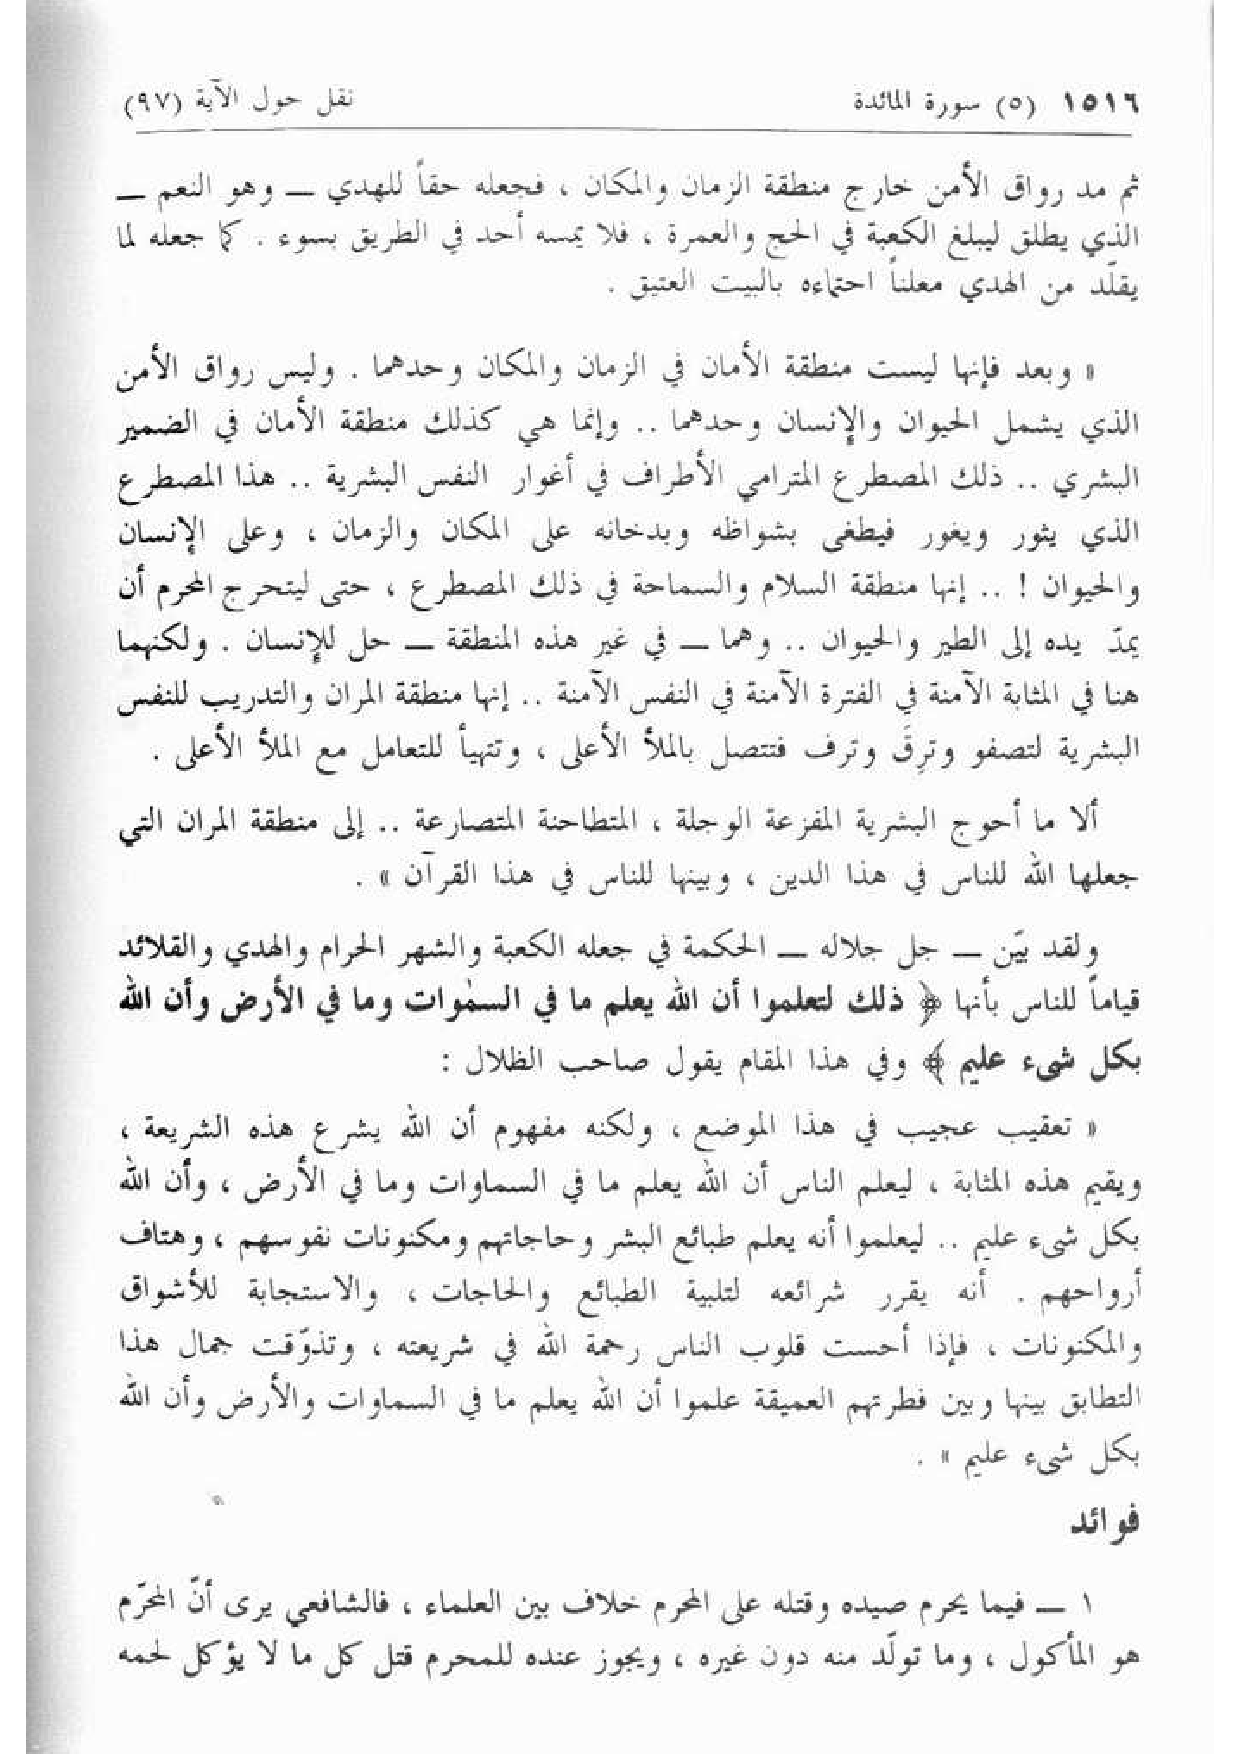 ١٥١٦ (٥) سورة المائدة نقل حول الآية (٩٧)
ثم مد رواق الأمن خارج منطقة الزمان والمكان ، فجعله حقاً للهدي ــ وهو النعم ــ
الذي يطلق ليبلغ الكعبة في الحج والعمرة ، فلا يمسه أحد في الطريق بسوء . كما جعله لما
يقلّد من الهدي معلناً احتماءه بالبيت العتيق .
« وبعد فإنها ليست منطقة الأمان في الزمان والمكان وحدهما . وليس رواق الأمن
الذي يشمل الحيوان والإنسان وحدهما .. وإنما هي كذلك منطقة الأمان في الضمير
البشري .. ذلك المصطرع المترامي الأطراف في أغوار النفس البشرية .. هذا المصطرع
الذي يثور ويغور فيطغى بشواظه وبدخانه على المكان والزمان ، وعلى الإنسان
والحيوان ! .. إنها منطقة السلام والسماحة في ذلك المصطرع ، حتى ليتحرج المحرم أن
يمدّ يده إلى الطير والحيوان .. وهما ــ في غير هذه المنطقة ــ حل للإنسان . ولكنهما
هنا في المثابة الآمنة في الفترة الآمنة في النفس الآمنة .. إنها منطقة المران والتدريب للنفس
البشرية لتصفو وترِقّ وترف فتتصل بالملأ الأعلى ، وتتهيأ للتعامل مع الملأ الأعلى .
ألا ما أحوج البشرية المفزعة الوجلة ، المتطاحنة المتصارعة .. إلى منطقة المران التي
جعلها الله للناس في هذا الدين ، وبينها للناس في هذا القرآن » .
ولقد بيّن ــ جل جلاله ــ الحكمة في جعله الكعبة والشهر الحرام والهدي والقلائد
قياماً للناس بأنها ﴿ ذلك لتعلموا أن الله يعلم ما في السمٰوات وما في الأرض وأن الله
بكل شىء عليم ﴾ وفي هذا المقام يقول صاحب الظلال :
« تعقيب عجيب في هذا الموضع ، ولكنه مفهوم أن الله يشرع هذه الشريعة ،
ويقيم هذه المثابة ، ليعلم الناس أن الله يعلم ما في السماوات وما في الأرض ، وأن الله
بكل شىء عليم .. ليعلموا أنه يعلم طبائع البشر وحاجاتهم ومكنونات نفوسهم ، وهتاف
أرواحهم . أنه يقرر شرائعه لتلبية الطبائع والحاجات ، والاستجابة للأشواق
والمكنونات ، فإذا أحست قلوب الناس رحمة الله في شريعته ، وتذوّقت جمال هذا
التطابق بينها وبين فطرتهم العميقة علموا أن الله يعلم ما في السماوات والأرض وأن الله
بكل شىء عليم » .
فوائد
١ ــ فيما يحرم صيده وقتله على المحرم خلاف بين العلماء ، فالشافعي يرى أنّ المحرّم
هو المأكول ، وما تولّد منه دون غيره ، ويجوز عنده للمحرم قتل كل ما لا يؤكل لحمه